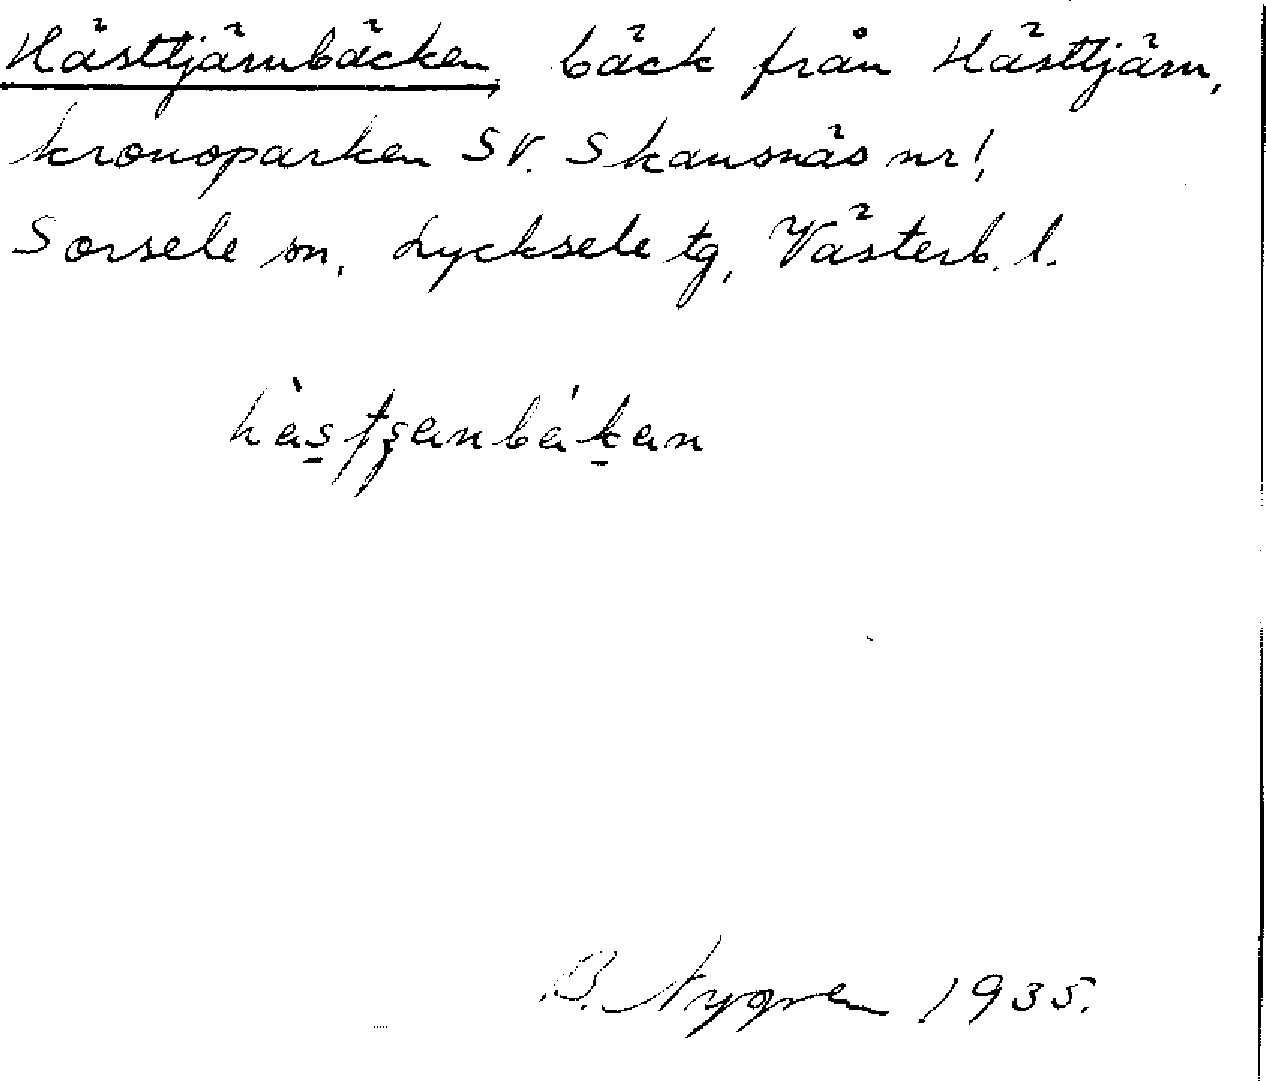 Hästtjärnbäcken, bäck från Hästtjärn,
kronoparken SV. Skansnäs nr 1,
Sorsele sn, Lycksele tg, Västerb. l.
B. Nygren 1935.